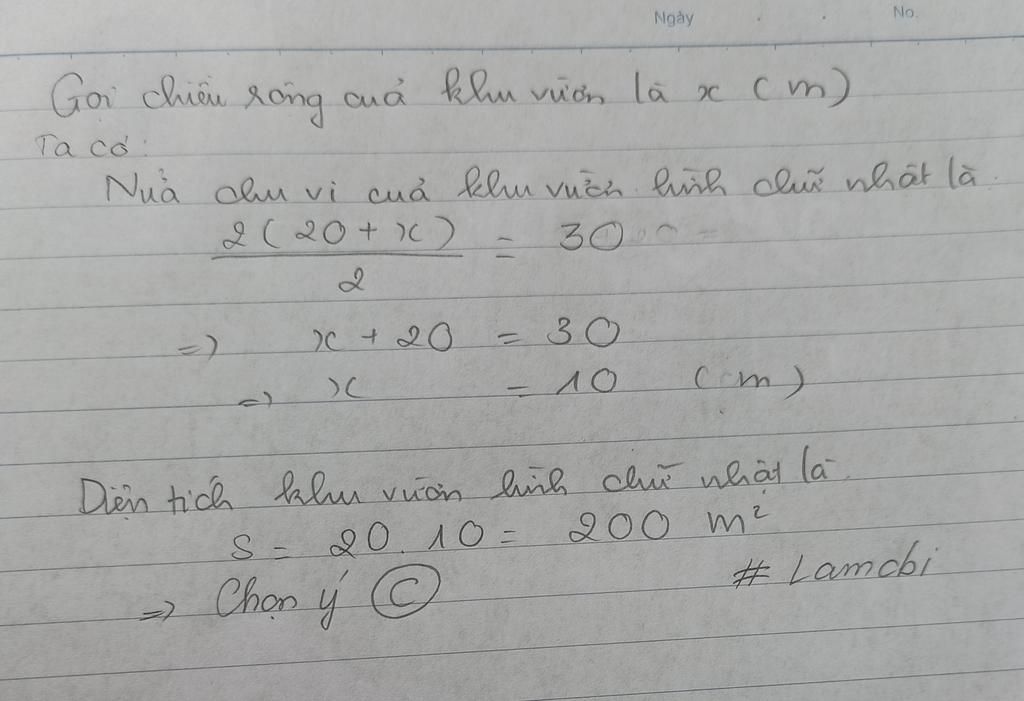 Ngày . . No.
Gọi chiều rộng cuả khu vườn là x (m)
Ta có:
Nuả chu vi cuả khu vườn hình chữ nhật là
2(20+x)/2 = 30
=> x + 20 = 30
=> x = 10 (m)
Diện tích khu vườn hình chữ nhật là
S = 20.10 = 200 m²
=> Chọn ý C
# Lamcbi